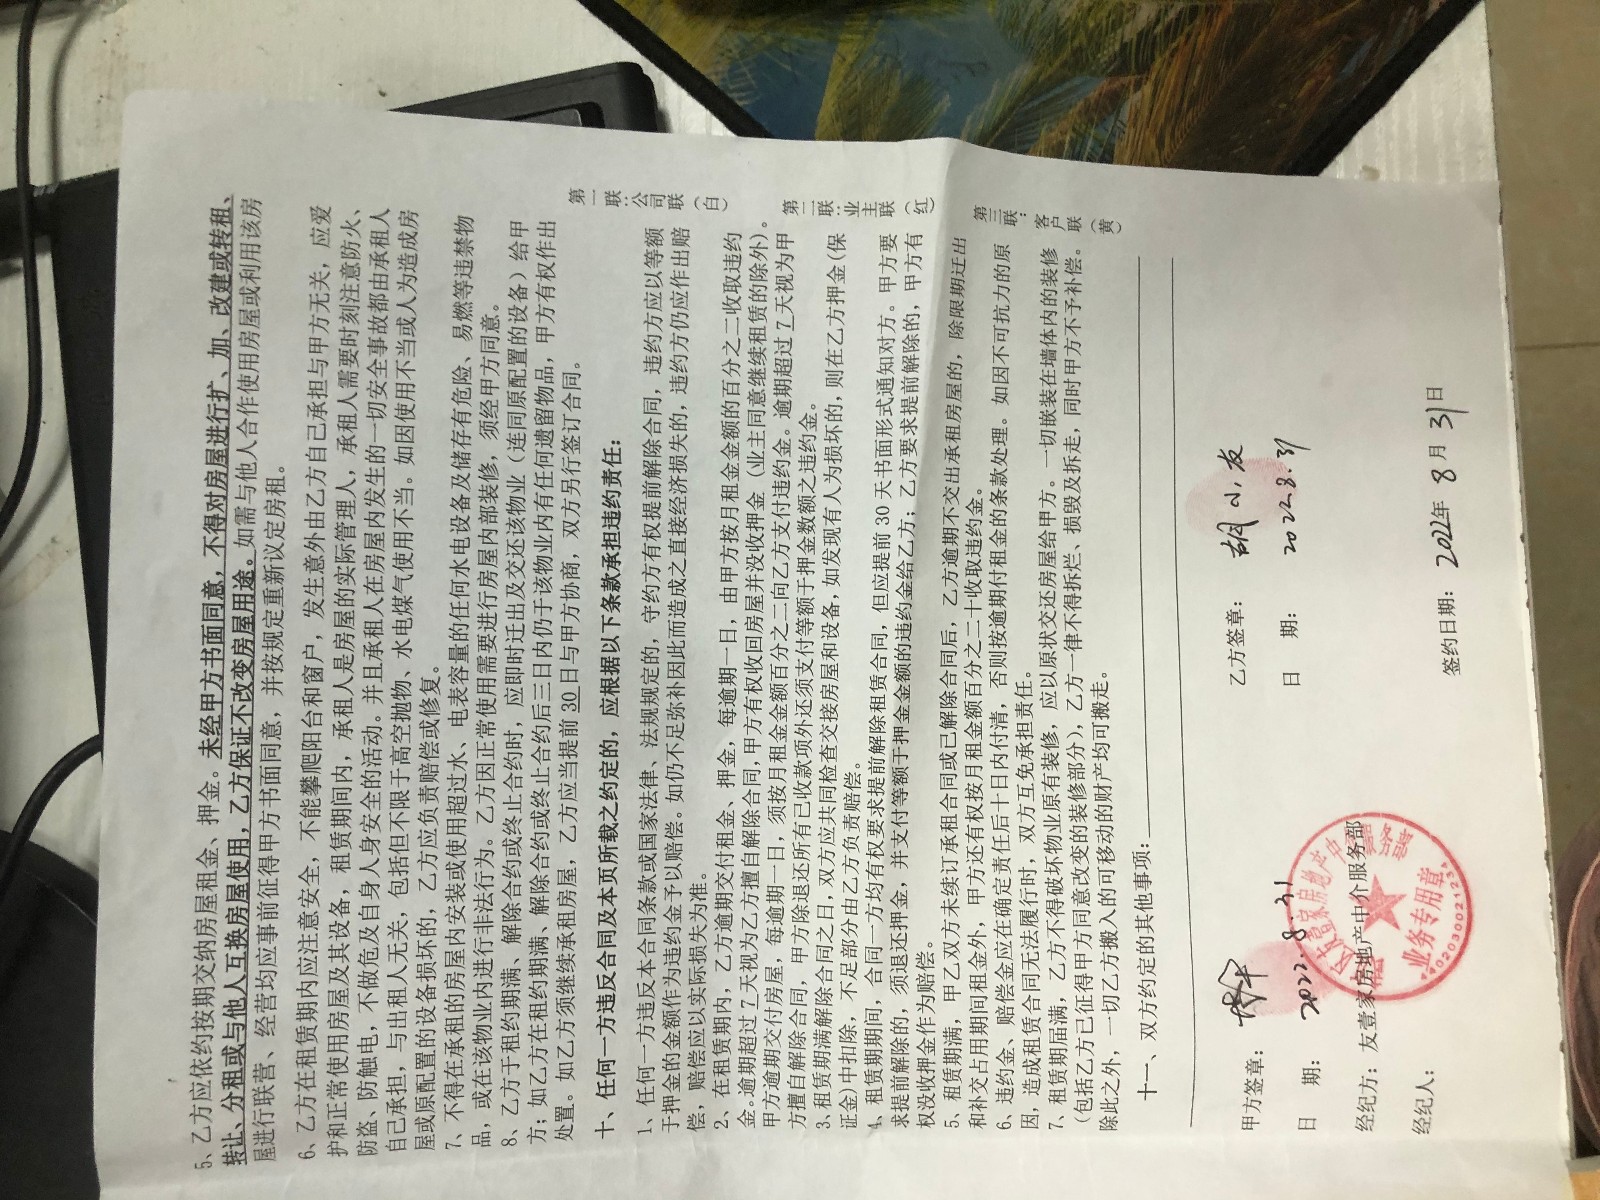 5、乙方应依约按期交纳房屋租金、押金。未经甲方书面同意，不得对房屋进行扩、加、改建或转租、
转让、分租或与他人互换房屋使用，乙方保证不改变房屋用途。如需与他人合作使用房屋或利用该房
屋进行联营、经营均应事前征得甲方书面同意，并按规定重新议定房租。
6、乙方在租赁期内应注意安全，不能攀爬阳台和窗户，发生意外由乙方自己承担与甲方无关，应爱
护和正常使用房屋及其设备，租赁期间内，承租人是房屋的实际管理人，承租人需要时刻注意防火、
防盗、防触电，不做危及自身人身安全的活动。并且承租人在房屋内发生的一切安全事故都由承租人
自己承担，与出租人无关，包括但不限于高空抛物、水电煤气使用不当。如因使用不当或人为造成房
屋或原配置的设备损坏的，乙方应负责赔偿或修复。
7、不得在承租的房屋内安装或使用超过水、电表容量的任何水电设备及储存有危险、易燃等违禁物
品，或在该物业内进行非法行为。乙方因正常使用需要进行房屋内部装修，须经甲方同意。
8、乙方于租约期满、解除合约或终止合约时，应即时迁出及交还该物业（连同原配置的设备）给甲
方；如乙方在租约期满、解除合约或终止合约后三日内仍于该物业内有任何遗留物品，甲方有权作出
处置。如乙方须继续承租房屋，乙方应当提前30日与甲方协商，双方另行签订合同。
十、任何一方违反合同及本页所载之约定的，应根据以下条款承担违约责任：
1、任何一方违反本合同条款或国家法律、法规规定的，守约方有权提前解除合同，违约方应以等额
于押金的金额作为违约金予以赔偿。如仍不足弥补因此而造成之直接经济损失的，违约方仍应作出赔
偿，赔偿应以实际损失为准。
2、在租赁期内，乙方逾期交付租金、押金，每逾期一日，由甲方按月租金金额的百分之二收取违约
金。逾期超过7天视为乙方擅自解除合同，甲方有权收回房屋并没收押金（业主同意继续租赁的除外）。
甲方逾期交付房屋，每逾期一日，须按月租金金额百分之二向乙方支付违约金。逾期超过7天视为甲
方擅自解除合同，甲方除退还所有已收款项外还须支付等额于押金数额之违约金。
3、租赁期满解除合同之日，双方应共同检查交接房屋和设备，如发现有人为损坏的，则在乙方押金(保
证金)中扣除，不足部分由乙方负责赔偿。
4、租赁期期间，合同一方均有权要求提前解除租赁合同，但应提前30天书面形式通知对方。甲方要
求提前解除的，须退还押金，并支付等额于押金金额的违约金给乙方；乙方要求提前解除的，甲方有
权没收押金作为赔偿。
5、租赁期满，甲乙双方未续订承租合同或已解除合同后，乙方逾期不交出承租房屋的，除限期迁出
和补交占用期间租金外，甲方还有权按月租金额百分之二十收取违约金。
6、违约金、赔偿金应在确定责任后十日内付清，否则按逾期付租金的条款处理。如因不可抗力的原
因，造成租赁合同无法履行时，双方互免承担责任。
7、租赁期届满，乙方不得破坏物业原有装修，应以原状交还房屋给甲方。一切嵌装在墙体内的装修
（包括乙方已征得甲方同意改变的装修部分），乙方一律不得拆烂、损毁及拆走，同时甲方不予补偿。
除此之外，一切乙方搬入的可移动的财产均可搬走。
十一、双方约定的其他事项：
第一联：公司联（白）
第二联：业主联（红）
第三联：客户联（黄）
甲方签章：
乙方签章：胡小友
日 期：2022.8.31
日 期：2022.8.31
经纪方：友壹家房地产中介服务部
经纪人：
签约日期：2022年8月31日
业务专用章